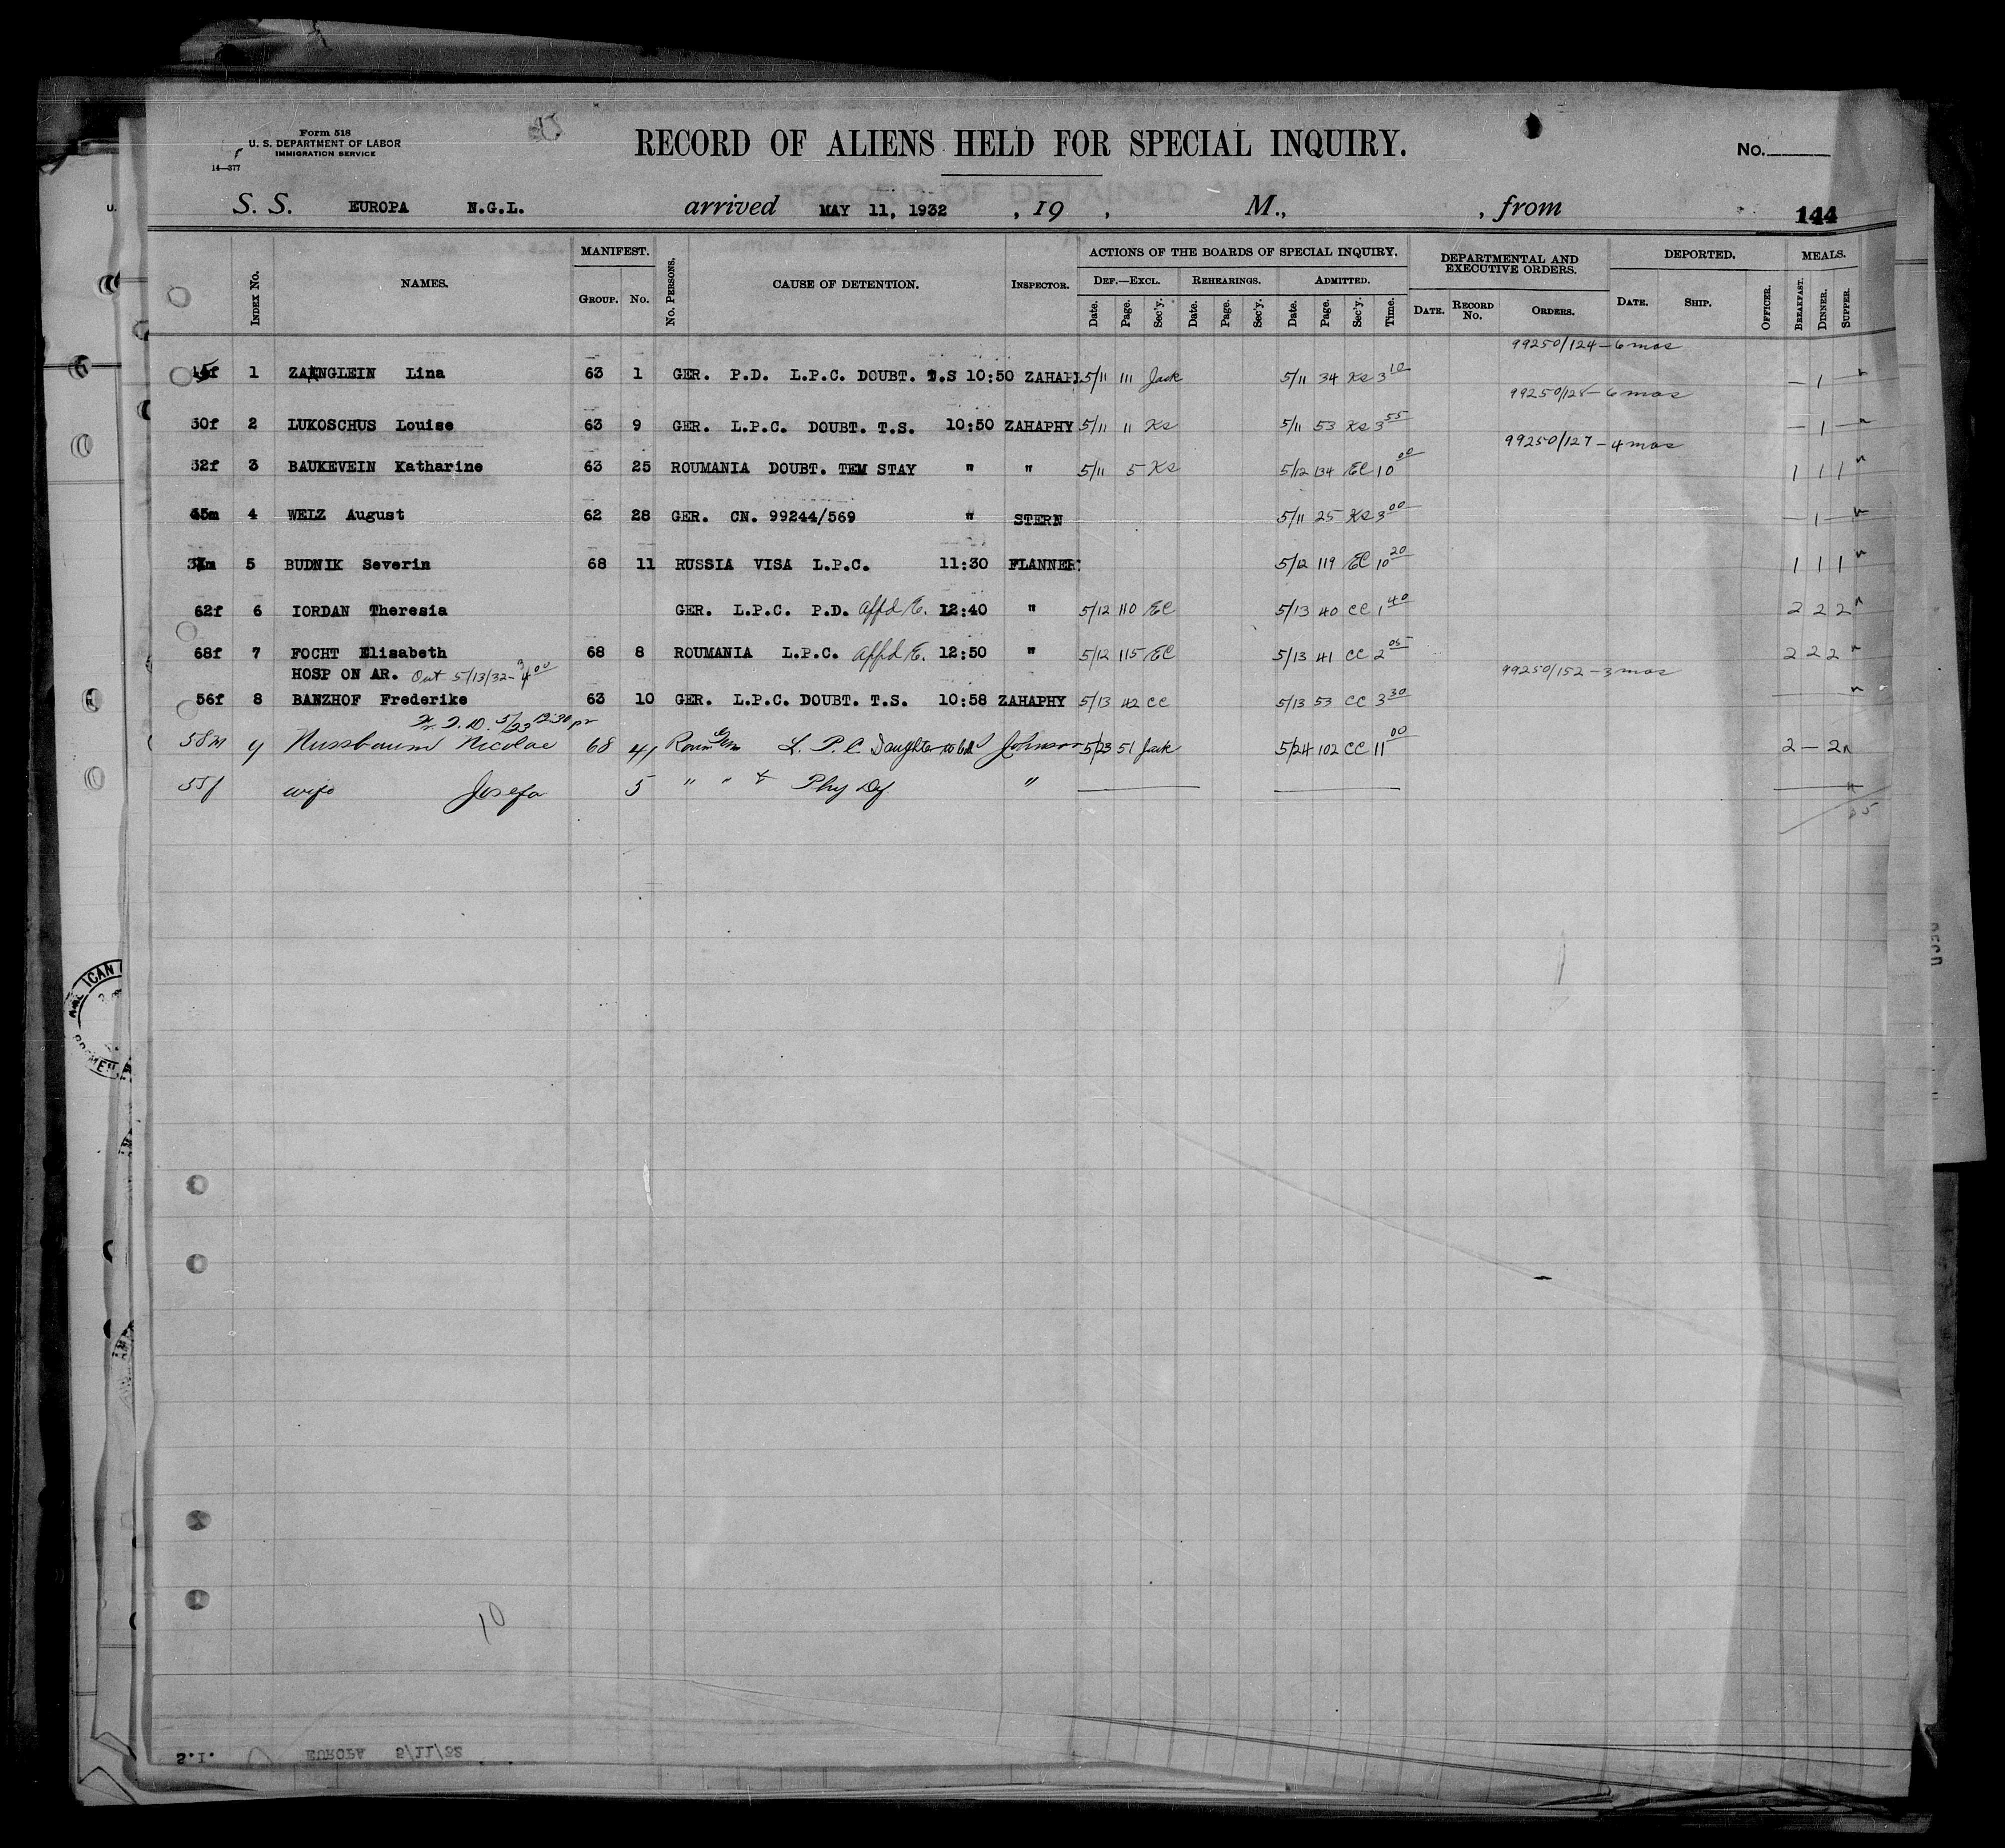 Form 518
U. S. DEPARTMENT OF LABOR
IMMIGRATION SERVICE
14—377
RECORD OF ALIENS HELD FOR SPECIAL INQUIRY.
No.
S. S. EUROPA N.G.L. arrived MAY 11, 1932 , 19 , M., , from 144
INDEX No. NAMES. MANIFEST. GROUP. No. No. PERSONS. CAUSE OF DETENTION. INSPECTOR. ACTIONS OF THE BOARDS OF SPECIAL INQUIRY. DEF.—EXCL. Date. Page. Sec'y. REHEARINGS. Date. Page. Sec'y. ADMITTED. Date. Page. Sec'y. Time. DEPARTMENTAL AND EXECUTIVE ORDERS. DATE. RECORD No. ORDERS. DEPORTED. DATE. SHIP. OFFICER. MEALS. BREAKFAST. DINNER. SUPPER.
99250/124 - 6 mos
1 ZAENGLEIN Lina 63 1 GER. P.D. L.P.C. DOUBT. T.S 10:50 ZAHAPH 5/11 111 Jack 5/11 34 Ks 3 10 — 1
99250/128 - 6 mos
50f 2 LUKOSCHUS Louise 63 9 GER. L.P.C. DOUBT. T.S. 10:50 ZAHAPHY 5/11 11 Ks 5/11 53 Ks 3 55 — 1 —
99250/127 - 4 mos
52f 3 BAUKEVEIN Katharine 63 25 ROUMANIA DOUBT. TEM STAY " " 5/11 5 Ks 5/12 134 EC 10 00 1 1 1
45m 4 WELZ August 62 28 GER. CN. 99244/569 " STERN 5/11 25 Ks 3 00 — 1 —
5 BUDNIK Severin 68 11 RUSSIA VISA L.P.C. 11:30 FLANNER 5/12 119 EC 10 20 1 1 1
62f 6 IORDAN Theresia GER. L.P.C. P.D. affd E. 12:40 " 5/12 110 EC 5/13 40 CC 1 40 2 2 2
68f 7 FOCHT Elisabeth 68 8 ROUMANIA L.P.C. affd E. 12:50 " 5/12 115 EC 5/13 41 CC 2 05 2 2 2
HOSP ON AR. Out 5/13/32 - 4 00 99250/152 - 3 mos
56f 8 BANZHOF Frederike 63 10 GER. L.P.C. DOUBT. T.S. 10:58 ZAHAPHY 5/13 42 CC 5/13 53 CC 3 30
5/23 12:30 pm
58m 9 Nussbaum Nicolae 68 4 Roum Germ L. P. C. Daughter Johnson 5/23 51 Jack 5/24 102 CC 11 00 2 — 2
55f wife Josefa 5 " " & Phy Df. "
10
S.I. EUROPA 5/11/32